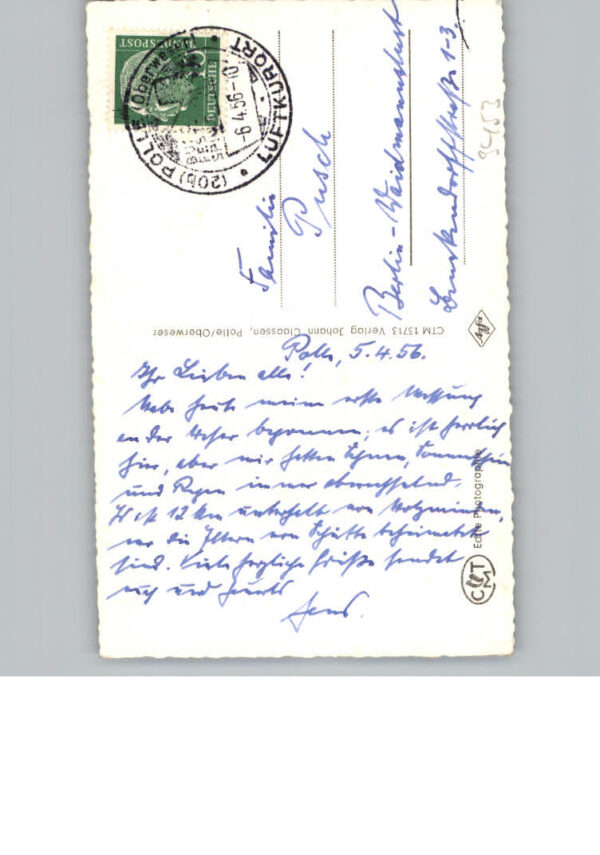 DEUTSCHE
BUNDESPOST
(20b) POLLE (Oberweser)
-6.4.56-10
LUFTKURORT
Familie
Pusch
Berlin-Waidmannslust
1-3.
3453
CTM 15713 Verlag Johann Claassen, Polle/Oberweser
Agfa
Polle, 5.4.56.
Ihr Lieben alle!
Habe heute meine erste
an der Weser begonnen; es ist herrlich
hier, aber wir hatten Schnee, Sonnenschein
und Regen immer abwechselnd.
Es ist 12 km unterhalb von Holzminden,
wo die Eltern von beheimatet
sind. Viele herzliche Grüße sendet
euch und
Echte Photographie
CMT